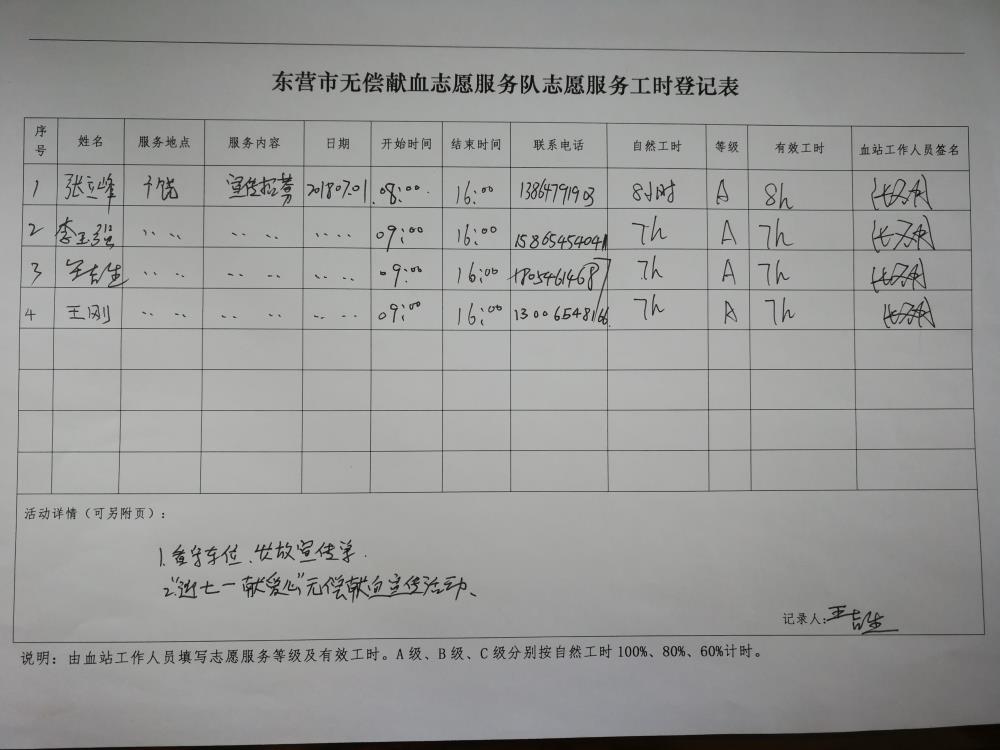 东营市无偿献血志愿服务队志愿服务工时登记表
序号 姓名 服务地点 服务内容 日期 开始时间 结束时间 联系电话 自然工时 等级 有效工时 血站工作人员签名
1 张立峰 广饶 宣传招募 2018.07.01 08:00 16:00 13864791903 8小时 A 8h
2 李玉强 〃 〃 〃 〃 〃 〃 09:00 16:00 15865454041 7h A 7h
3 王吉生 〃 〃 〃 〃 〃 〃 09:00 16:00 18054614687 7h A 7h
4 王刚 〃 〃 〃 〃 〃 〃 09:00 16:00 13006548166 7h A 7h
活动详情（可另附页）：
1.看守车位、发放宣传单.
2."迎七一献爱心"无偿献血宣传活动、
记录人:王吉生
说明：由血站工作人员填写志愿服务等级及有效工时。A级、B级、C级分别按自然工时100%、80%、60%计时。